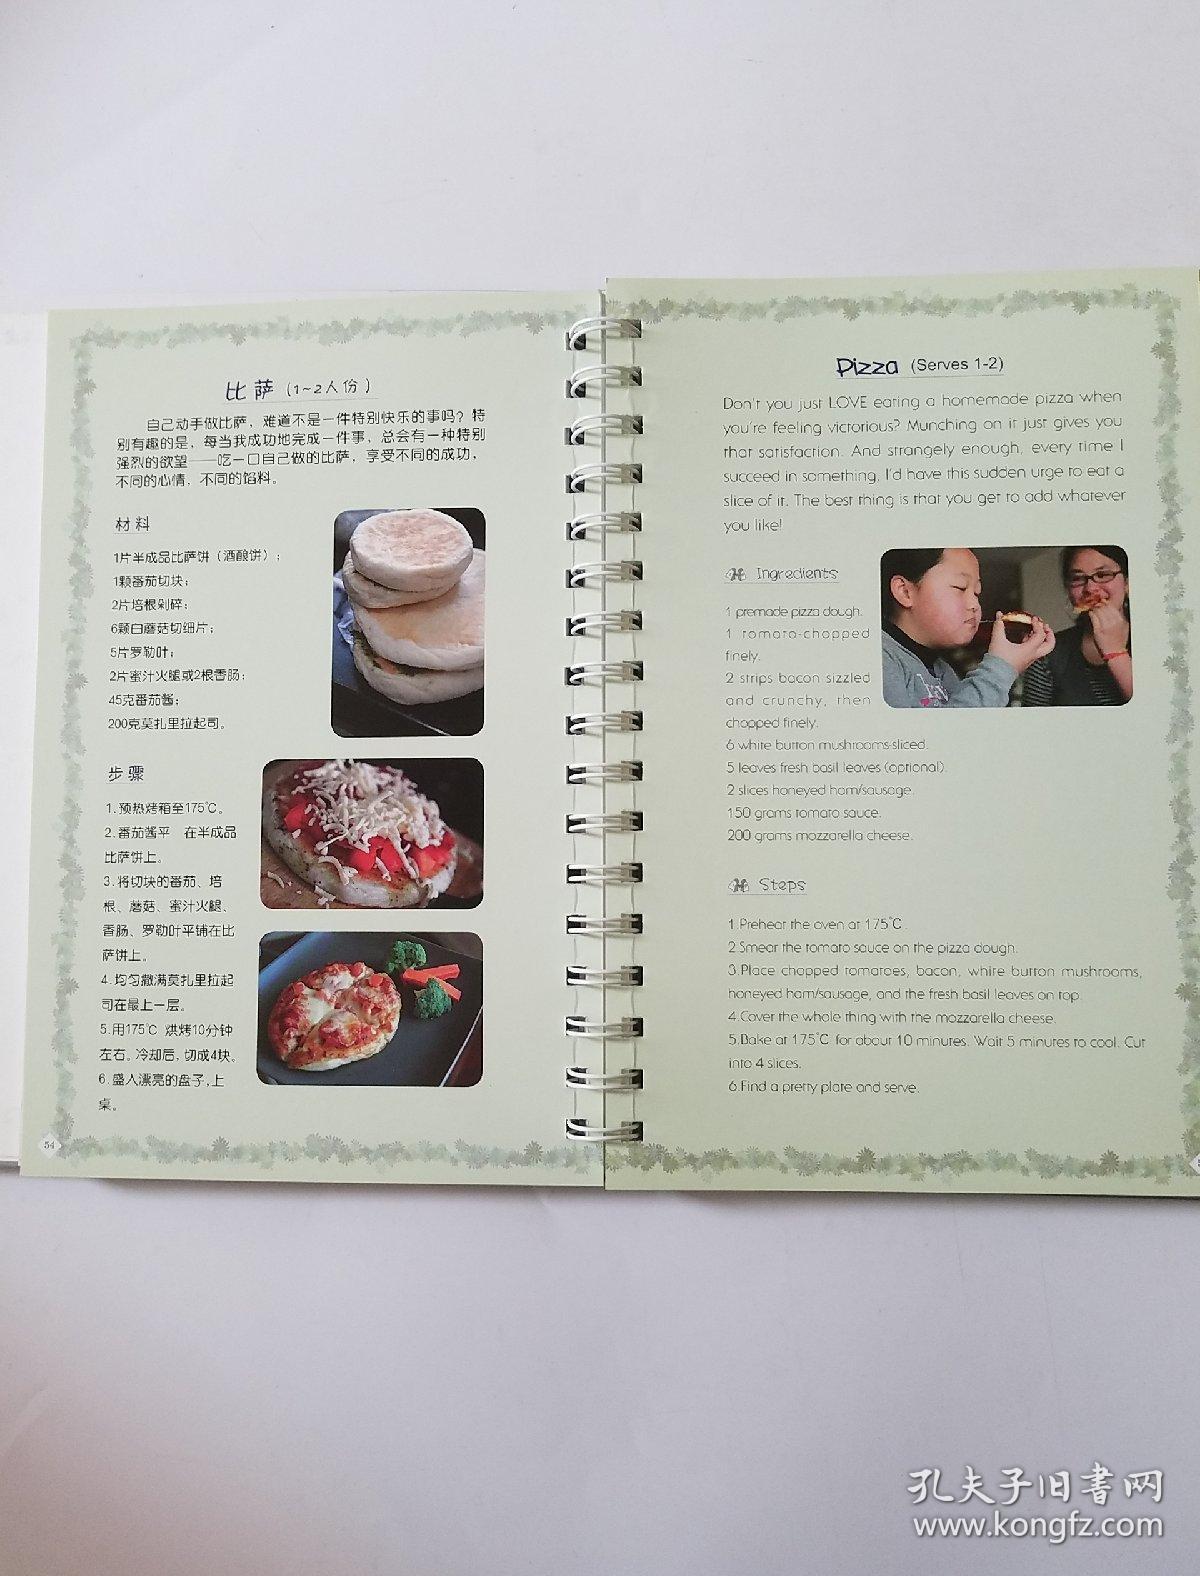 比萨 (1~2人份)
自己动手做比萨，难道不是一件特别快乐的事吗？特
别有趣的是，每当我成功地完成一件事，总会有一种特别
强烈的欲望——吃一口自己做的比萨，享受不同的成功，
不同的心情，不同的馅料。
材料
1片半成品比萨饼（酒酿饼）；
1颗番茄切块；
2片培根剁碎；
6颗白蘑菇切细片；
5片罗勒叶；
2片蜜汁火腿或2根香肠；
45克番茄酱；
200克莫扎里拉起司。
步骤
1.预热烤箱至175℃。
2.番茄酱平 在半成品
比萨饼上。
3.将切块的番茄、培
根、蘑菇、蜜汁火腿、
香肠、罗勒叶平铺在比
萨饼上。
4.均匀撒满莫扎里拉起
司在最上一层。
5.用175℃ 烘烤10分钟
左右。冷却后，切成4块。
6.盛入漂亮的盘子,上
桌。
54
Pizza (Serves 1-2)
Don't you just LOVE eating a homemade pizza when
you're feeling victorious? Munching on it just gives you
that satisfaction. And strangely enough, every time I
succeed in something, I'd have this sudden urge to eat a
slice of it. The best thing is that you get to add whatever
you like!
Ingredients
1 premade pizza dough.
1 tomato-chopped
finely.
2 strips bacon sizzled
and crunchy, then
chopped finely.
6 white button mushrooms-sliced.
5 leaves fresh basil leaves (optional).
2 slices honeyed ham/sausage.
150 grams tomato sauce.
200 grams mozzarella cheese.
Steps
1.Preheat the oven at 175℃.
2.Smear the tomato sauce on the pizza dough.
3.Place chopped tomatoes, bacon, white button mushrooms,
honeyed ham/sausage, and the fresh basil leaves on top.
4.Cover the whole thing with the mozzarella cheese.
5.Bake at 175℃ for about 10 minutes. Wait 5 minutes to cool. Cut
into 4 slices.
6.Find a pretty plate and serve.
孔夫子旧书网
www.kongfz.com